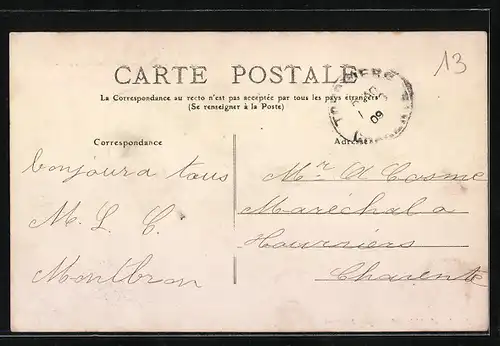 13
CARTE POSTALE
La Correspondance au recto n'est pas acceptée par tous les pays étrangers
(Se renseigner à la Poste)
Correspondance
Adresse
bonjour a tous
M. L. C.
Montbron
Mr A Cosme
Maréchal a
Charente
09